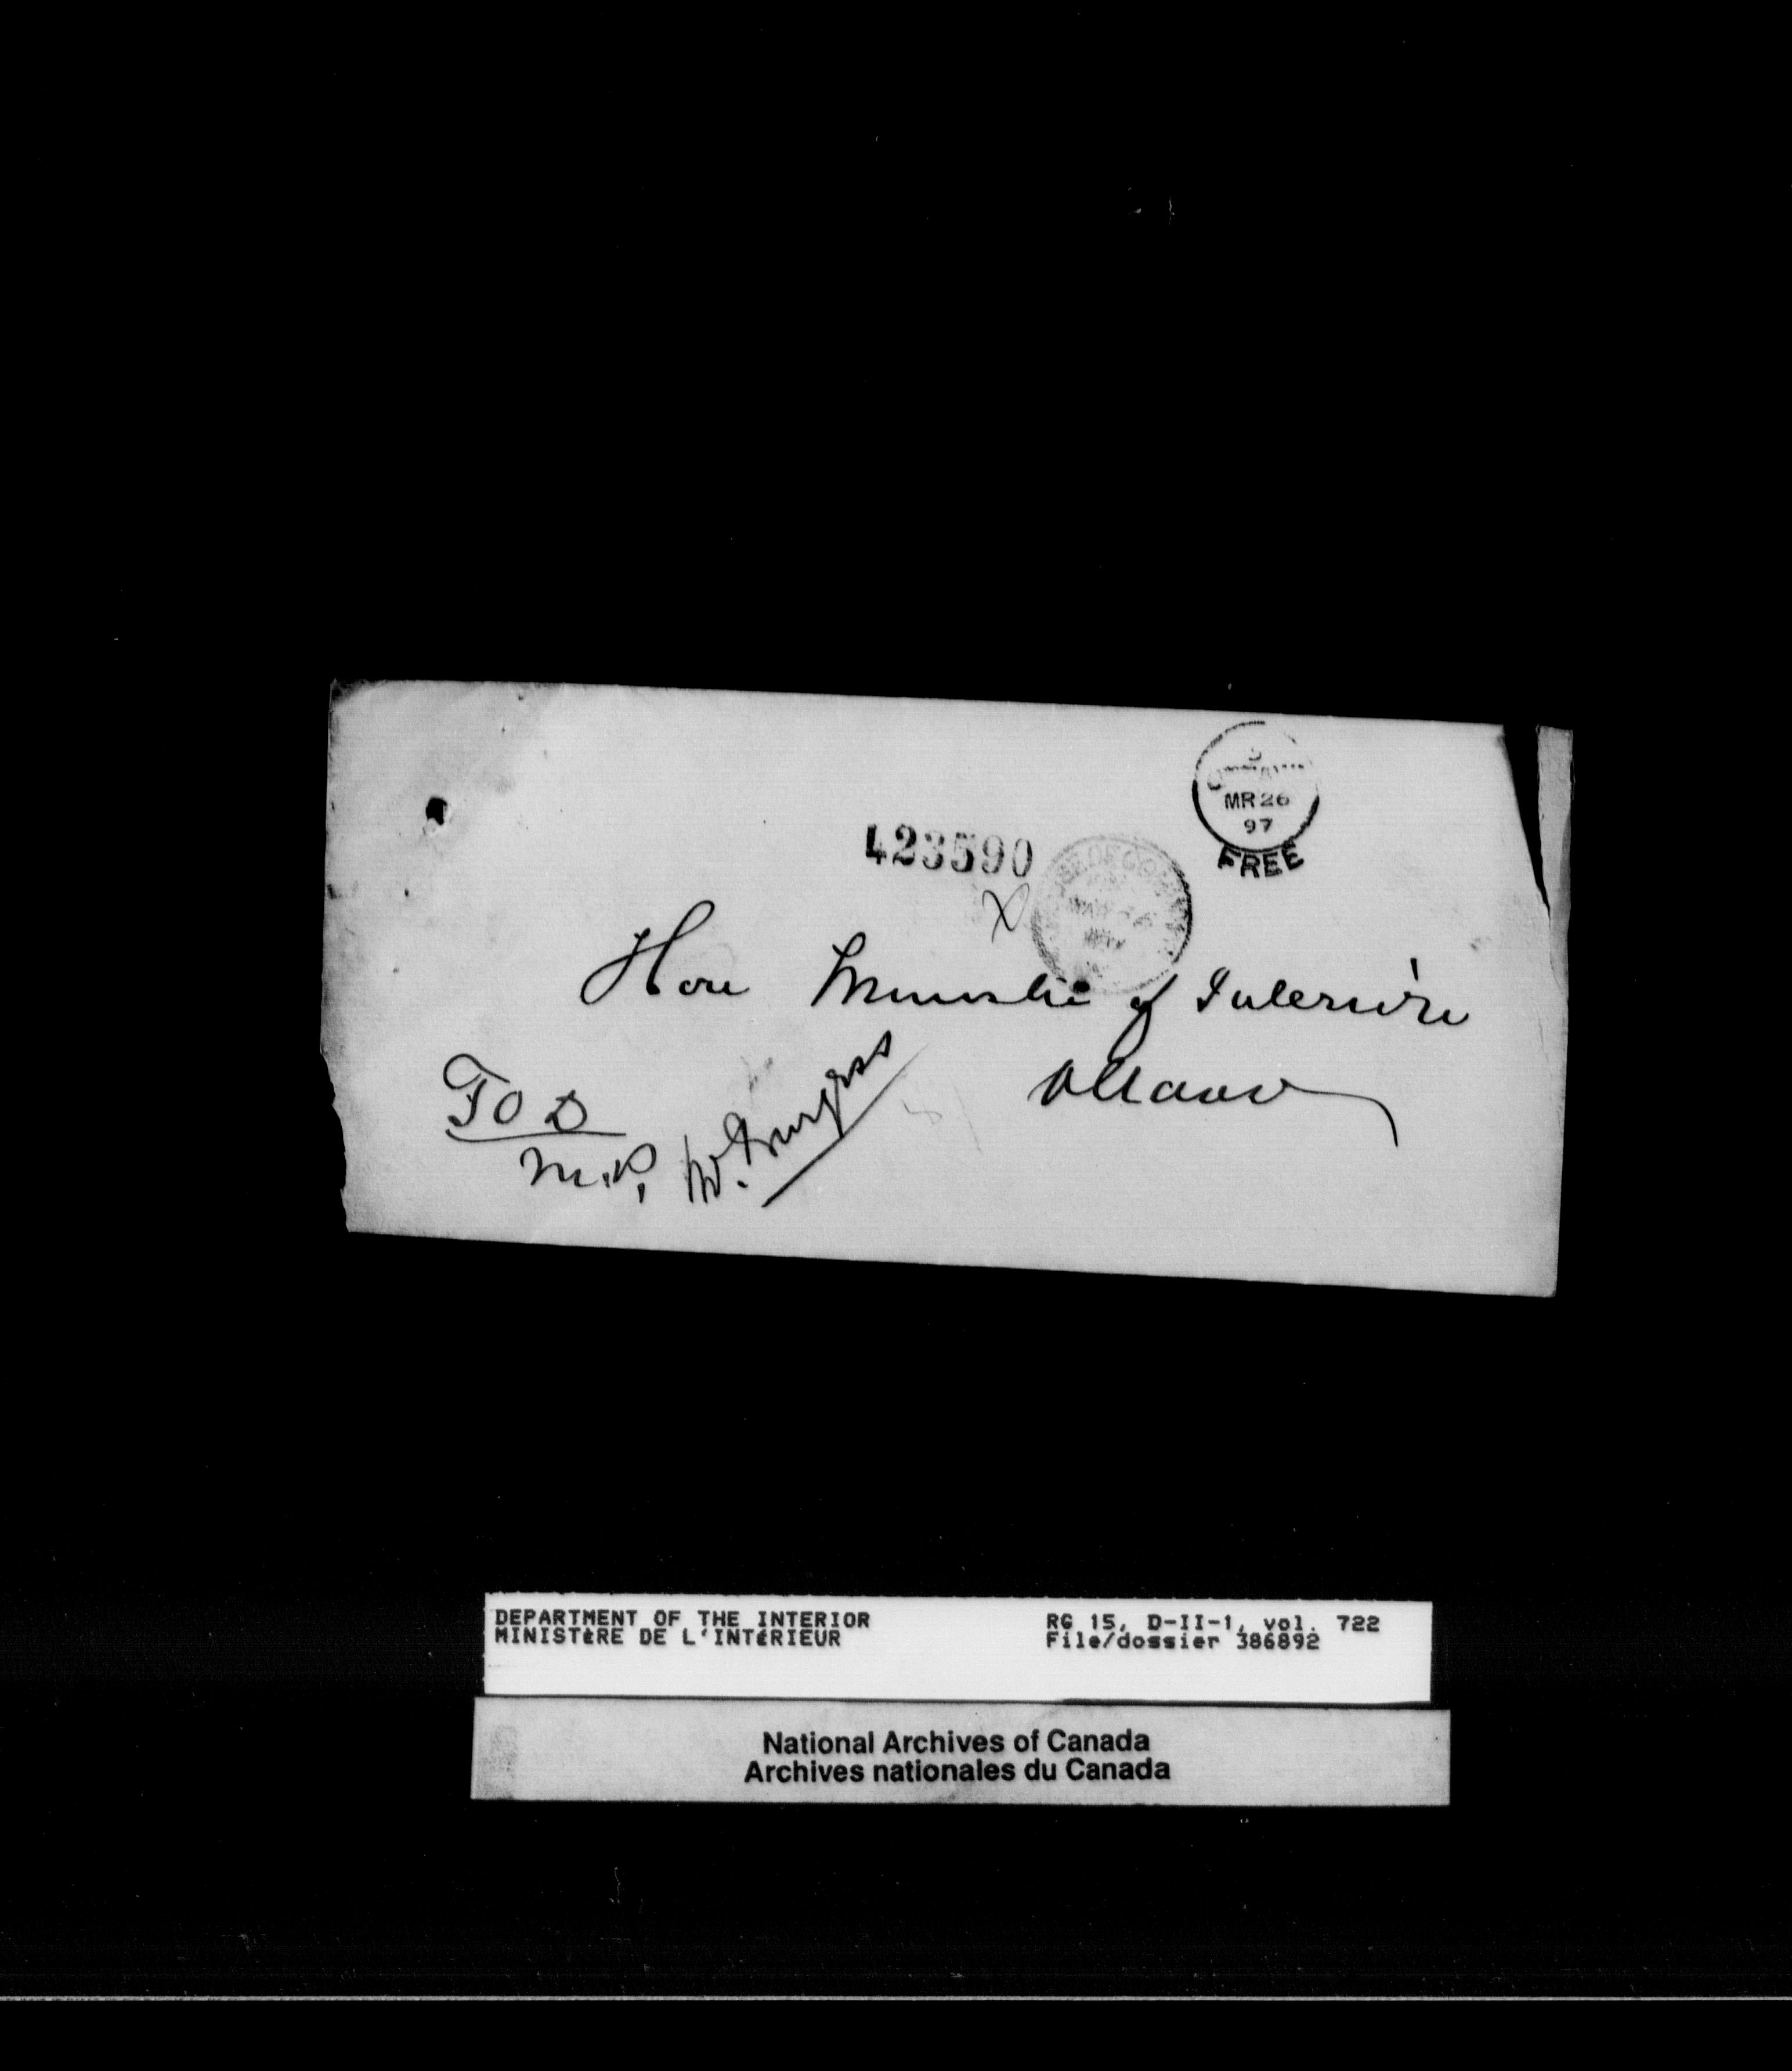 5
OTTAWA
MR 26
97
FREE
423590
HOUSE OF COMMONS
X
Hon Minister of Interior
Ottawa
T O D
M.P.
DEPARTMENT OF THE INTERIOR RG 15, D-II-1, vol. 722
MINISTÈRE DE L'INTÉRIEUR File/dossier 386892
National Archives of Canada
Archives nationales du Canada